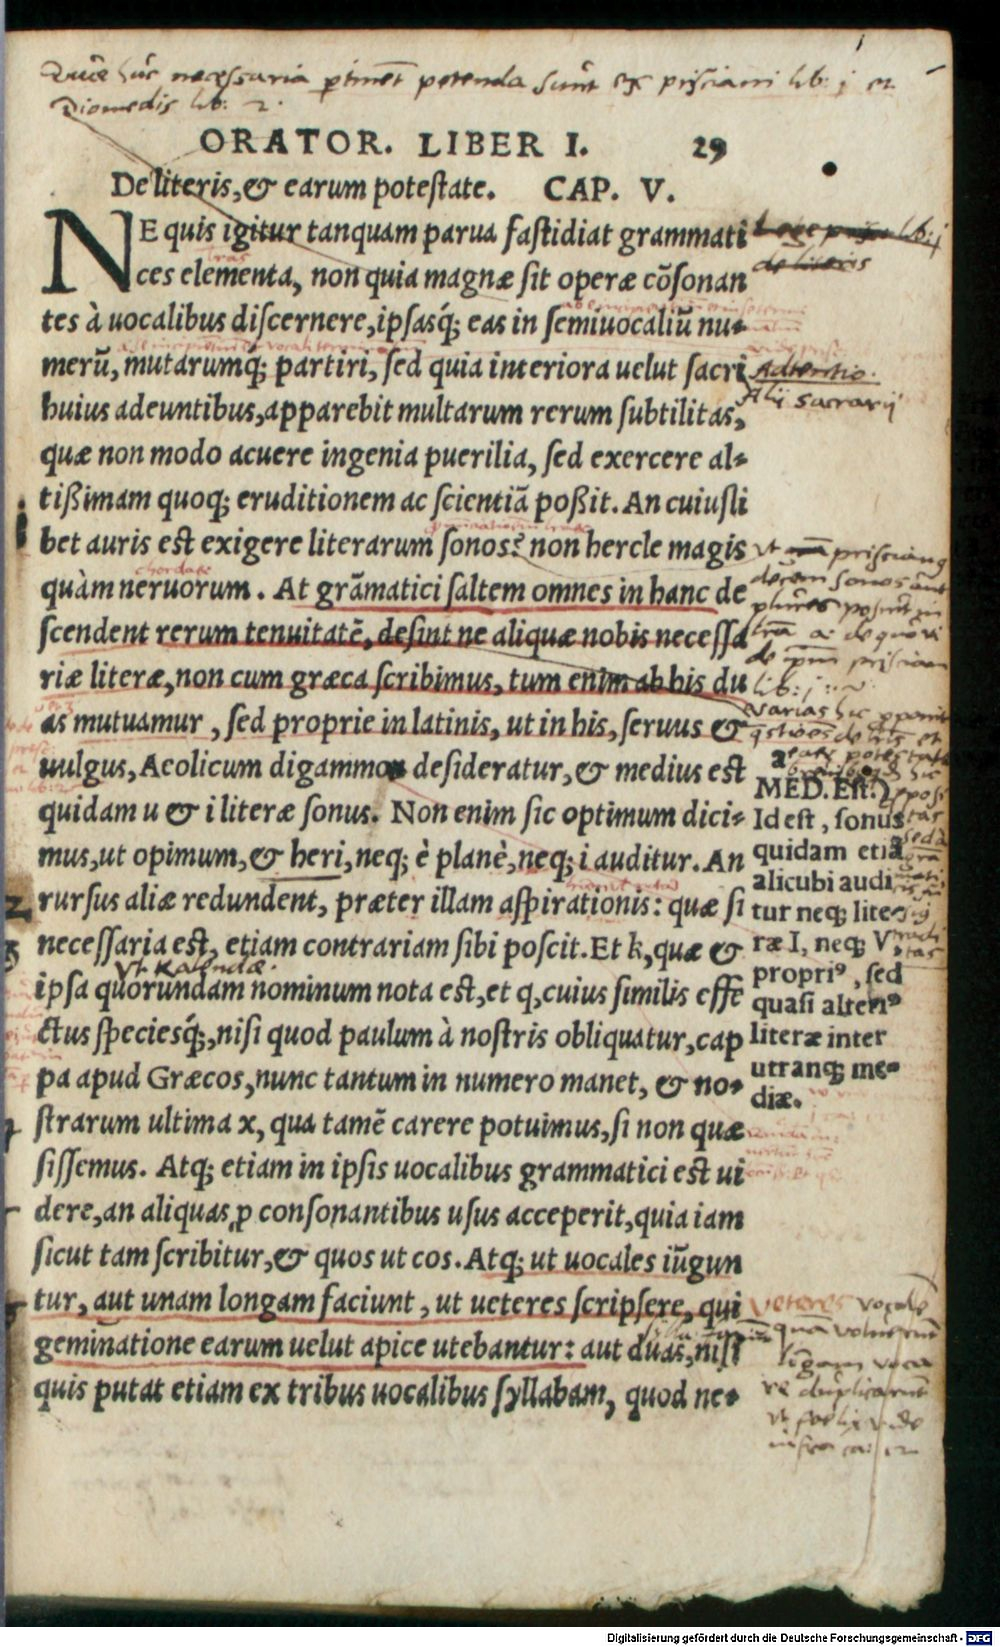 Quae huc necessaria ptinēt petenda sunt ex prisciani lib: j et
Diomedis lib: 2.
ORATOR. LIBER I. 29
De literis, & earum potestate. CAP. V.
NE quis igitur tanquam parua fastidiat grammati
ces elementa, non quia magnæ sit operæ cõsonan
tes à uocalibus discernere, ipsasq́; eas in semiuocaliũ nu-
merũ, mutarumq́; partiri, sed quia interiora uelut sacri
huius adeuntibus, apparebit multarum rerum subtilitas,
quæ non modo acuere ingenia puerilia, sed exercere al-
tißimam quoq; eruditionem ac scientiã poßit. An cuiusli
bet auris est exigere literarum sonos? non hercle magis
chordarũ
quàm neruorum. At grãmatici saltem omnes in hanc de
scendent rerum tenuitatẽ, desint ne aliquæ nobis necessa
riæ literæ, non cum græca scribimus, tum enim ab his du
as mutuamur, sed proprie in latinis, ut in his, seruus &
uulgus, Aeolicum digammon desideratur, & medius est
quidam u & i literæ sonus. Non enim sic optimum dici-
mus, ut opimum, & heri, neq; è planè, neq; i auditur. An
rursus aliæ redundent, præter illam aspirationis: quæ si
necessaria est, etiam contrariam sibi poscit. Et k, quæ &
Vt Kalendæ.
ipsa quorundam nominum nota est, et q, cuius similis effe
ctus speciesq́;, nisi quod paulum à nostris obliquatur, cap
pa apud Græcos, nunc tantum in numero manet, & no-
strarum ultima x, qua tamẽ carere potuimus, si non quæ
sissemus. Atq; etiam in ipsis uocalibus grammatici est ui
dere, an aliquas ꝓ consonantibus usus acceperit, quia iam
sicut tam scribitur, & quos ut cos. Atq; ut uocales iũgun
tur, aut unam longam faciunt, ut ueteres scripsere, qui
geminatione earum uelut apice utebantur: aut duas, nisi
quis putat etiam ex tribus uocalibus syllabam, quod ne-
de literis
Adtentio.
Alij sacrarij
a
MED. Est.)
Id est, sonus
quidam etiã
alicubi audi
tur neq; lite-
ræ I, neq; V
propri⁹, sed
quasi alteri⁹
literæ inter
utranq; me-
diæ.
Veteres vocalē
quā voluerunt
lōgam voca
re duplicarunt
infra ca: 12
Digitalisierung gefördert durch die Deutsche Forschungsgemeinschaft - DFG